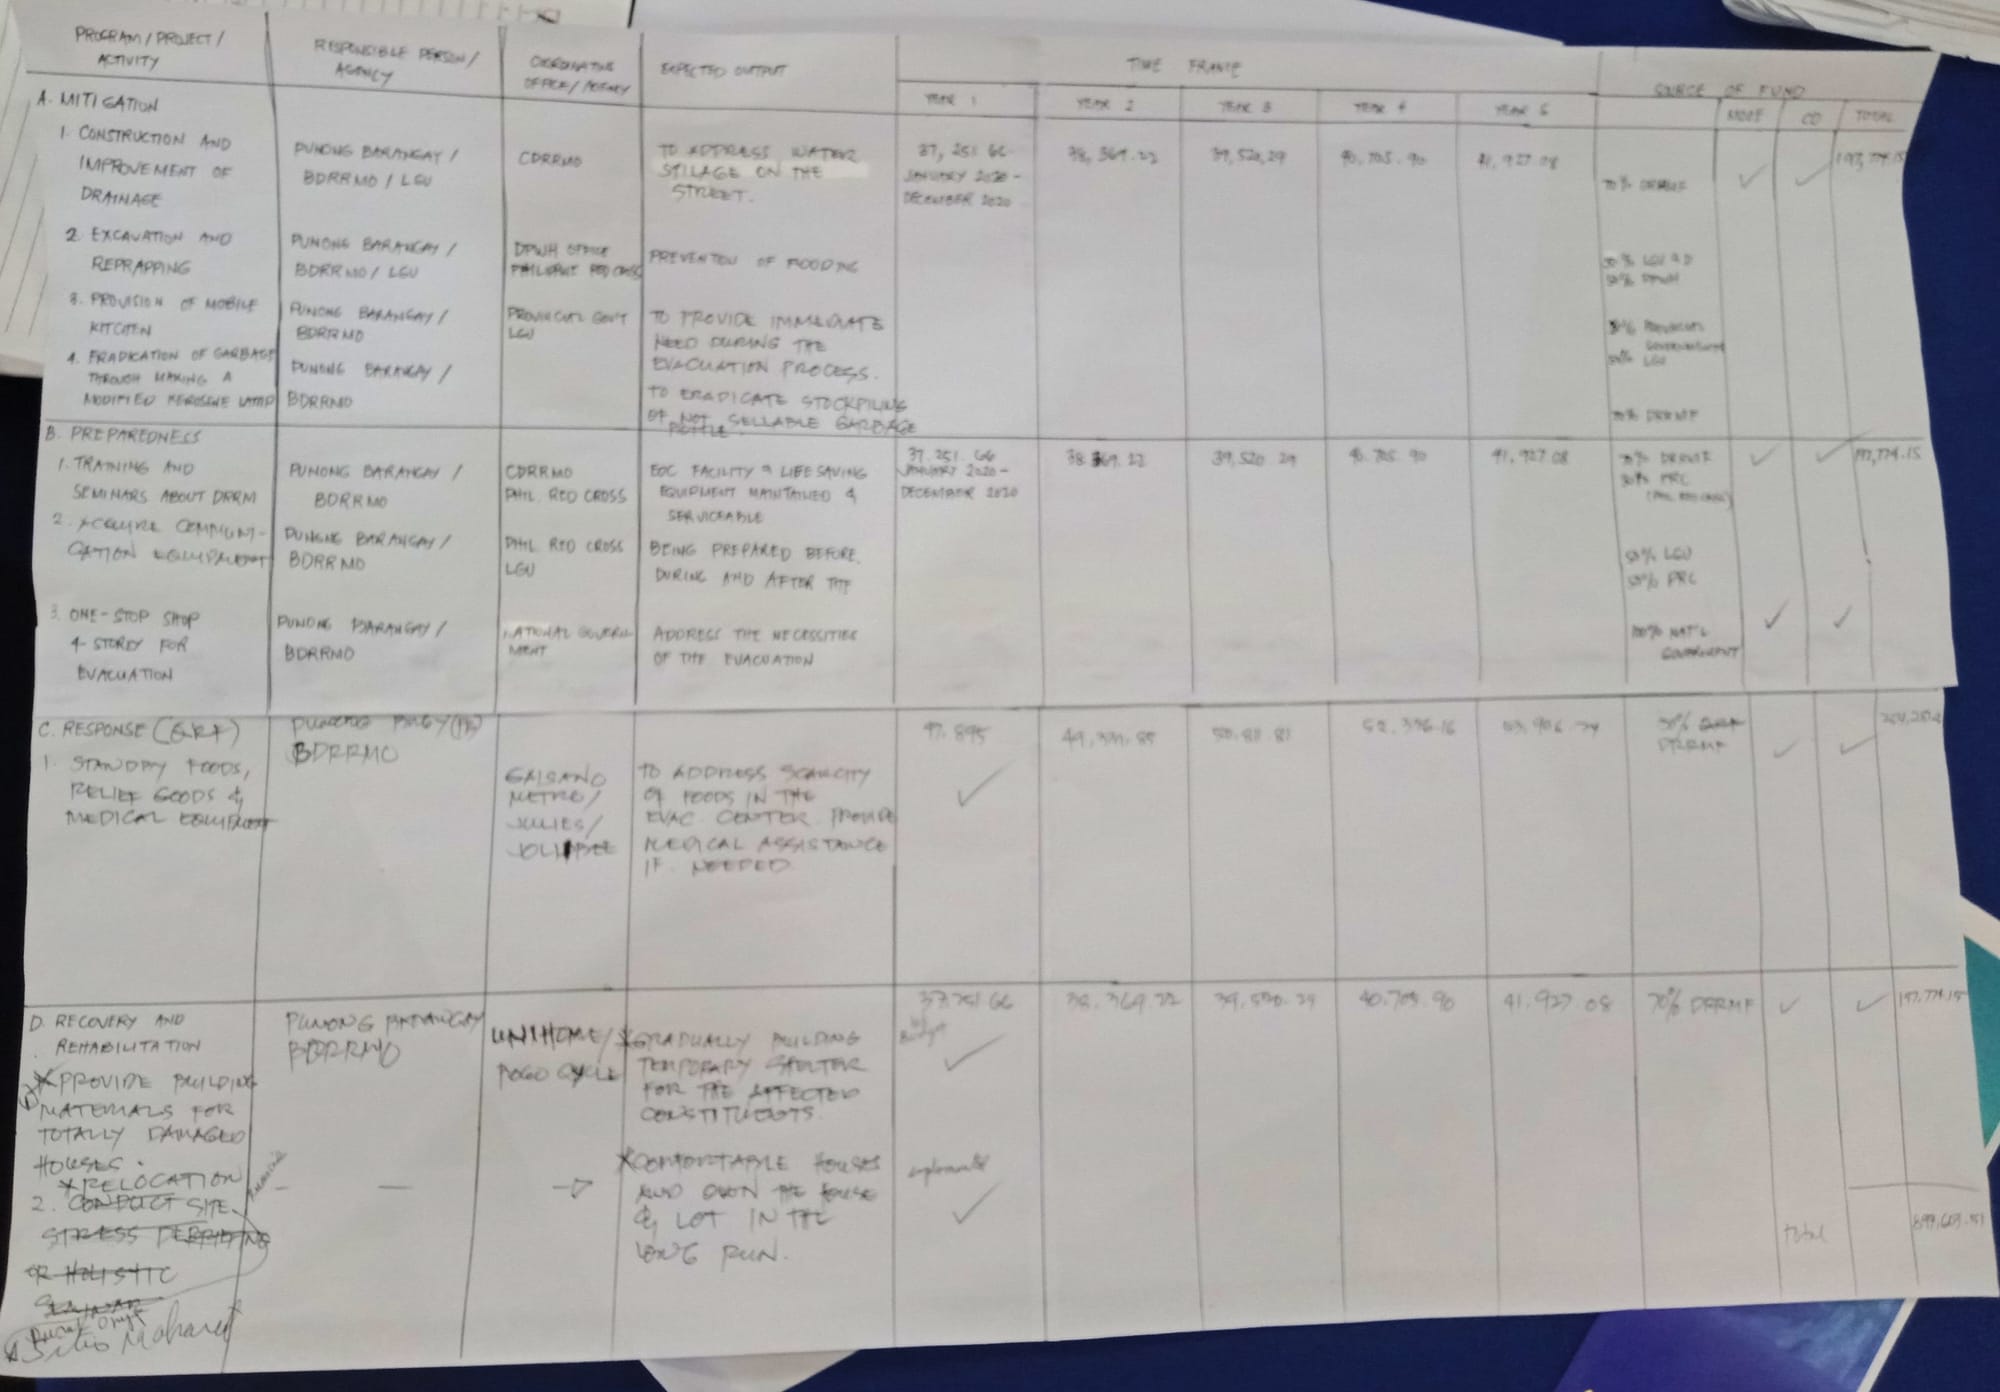 PROGRAM / PROJECT /
ACTIVITY
RESPONSIBLE PERSON /
AGENCY
COORDINATING
OFFICE / AGENCY
EXPECTED OUTPUT
TIME FRAME
YEAR 1
YEAR 2
YEAR 3
YEAR 4
YEAR 5
SOURCE OF FUND
MOOE
CO
TOTAL
A. MITIGATION
1. CONSTRUCTION AND
IMPROVEMENT OF
DRAINAGE
PUNONG BARANGAY /
BDRRMO / LGU
CDRRMO
TO ADDRESS WATER
STILAGE ON THE
STREET.
37,251.66
JANUARY 2020 -
DECEMBER 2020
38,369.22
39,520.29
40,705.90
41,927.08
70% DRRMF
197,774.15
2. EXCAVATION AND
REPRAPPING
PUNONG BARANGAY /
BDRRMO / LGU
DPWH OFFICE
PHILIPPINE RED CROSS
PREVENTION OF FLOODING
50% DPWH
3. PROVISION OF MOBILE
KITCHEN
PUNONG BARANGAY /
BDRRMO
PROVINCIAL GOV'T
LGU
TO PROVIDE IMMEDIATE
NEED DURING THE
EVACUATION PROCESS.
50% LGU
4. ERADICATION OF GARBAGE
THROUGH MAKING A
MODIFIED KEROSENE LAMP
PUNONG BARANGAY /
BDRRMO
TO ERADICATE STOCKPILING
OF NOT SELLABLE GARBAGE
BOTTLE.
70% DRRMF
B. PREPAREDNESS
1. TRAINING AND
SEMINARS ABOUT DRRM
PUNONG BARANGAY /
BDRRMO
CDRRMO
PHIL. RED CROSS
EOC FACILITY & LIFE SAVING
EQUIPMENT MAINTAINED &
SERVICEABLE
37,251.66
JANUARY 2020 -
DECEMBER 2020
38,369.22
39,520.29
40,705.90
41,927.08
70% DRRMF
30% PRC
(PHIL RED CROSS)
197,774.15
2. ACQUIRE COMMUNI-
CATION EQUIPMENT
PUNONG BARANGAY /
BDRRMO
PHIL RED CROSS
LGU
BEING PREPARED BEFORE,
DURING AND AFTER THE
50% LGU
50% PRC
3. ONE-STOP SHOP
4-STOREY FOR
EVACUATION
PUNONG BARANGAY /
BDRRMO
NATIONAL GOVERN
MENT
ADDRESS THE NECESSITIES
OF THE EVACUATION
100% NAT'L
GOVERNMENT
C. RESPONSE (QRF)
1. STANDBY FOODS,
RELIEF GOODS &
MEDICAL EQUIPMENT
PUNONG BRGY (PB)
BDRRMO
GAISANO
METRO /
JULIES /
JOLLIBEE
TO ADDRESS SCARCITY
OF FOODS IN THE
EVAC. CENTER PROVIDE
MEDICAL ASSISTANCE
IF NEEDED.
47,895
49,331.85
52,336.16
53,906.24
30% QRF
DRRMF
D. RECOVERY AND
REHABILITATION
PROVIDE BUILDING
MATERIALS FOR
TOTALLY DAMAGED
HOUSES.
PUNONG BARANGAY
BDRRMO
UNIHOME /
POGO CYCLE
GRADUALLY BUILDING
TEMPORARY SHELTER
FOR THE AFFECTED
CONSTITUENTS.
37,251.66
Budget
38,369.22
39,520.29
40,705.90
41,927.08
70% DRRMF
197,774.15
RELOCATION
2. CONDUCT SITE
STRESS DEBRIEFING
OR HOLISTIC
SEMINAR
Sitio
COMFORTABLE HOUSES
AND OWN THE HOUSE
& LOT IN THE
LONG RUN.
Total